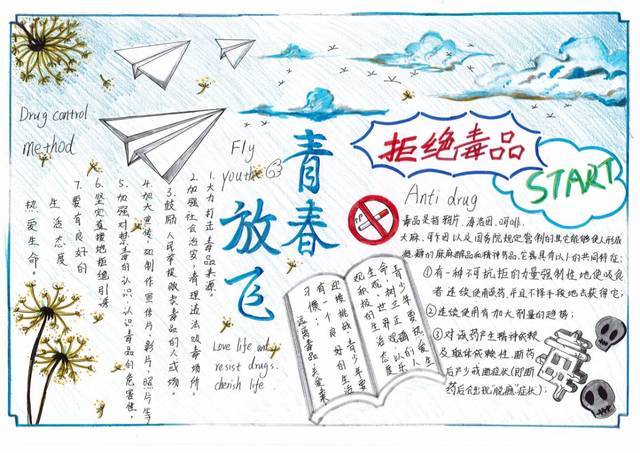 Drug control
method
Fly
youthe
青春
放飞
拒绝毒品
START
Anti drug
1.大力打击毒品来源。
2.加强社会治安,清理违法吸毒场所。
3.鼓励人民举报贩卖毒品的人或场。
4.加大宣传,如制作宣传片,影片,照片等
5.加强对毒品的认识,认识毒品的危害性,
6.坚定直接地拒绝引诱
7.要有良好的
生活态度
热爱生命。
Love life and
resist drugs.
cherish life
青少年要热爱生
观,树立正确的人生
积极的生活态度
迎接挑战,青少年要
有一个良好的生活
习惯;
远离毒品
毒品是指鸦片、海洛因、吗啡、
大麻、可卡因以及国务院规定管制的其它能够使人形成
瘾癖的麻醉药品和精神药品,它具有以下的共同特征:
①有一种不可抗拒的力量强制性地使吸食
者连续使用该药,并且不择手段地去获得它;
②连续使用有加大剂量的趋势;
③对该药产生精神依赖
及躯体依赖性,断药
后产生戒断症状(即断
药后会出现"脱瘾"症状);